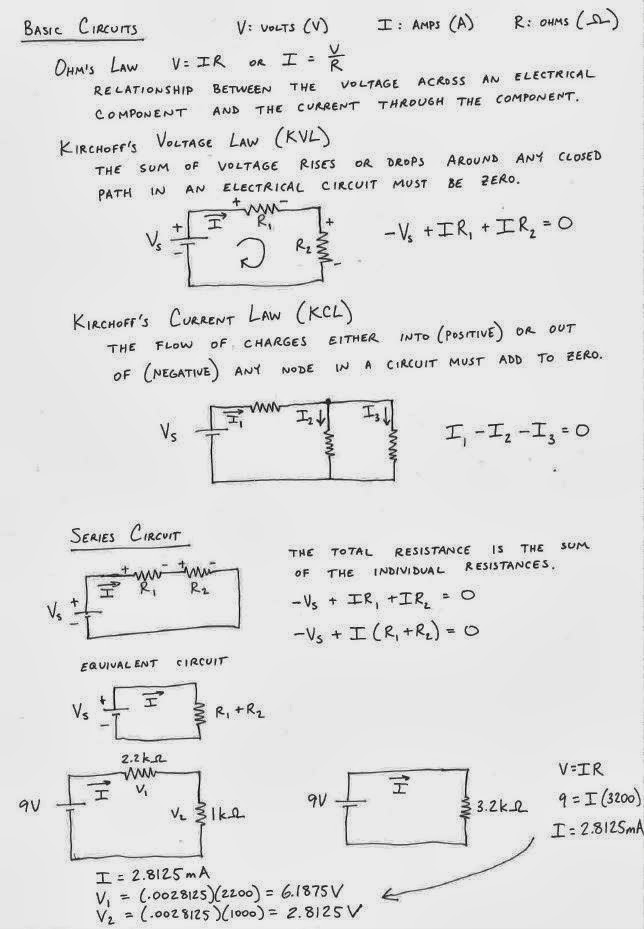 BASIC CIRCUITS V: VOLTS (V) I: AMPS (A) R: OHMS (Ω)
OHM'S LAW V=IR OR I = V/R
RELATIONSHIP BETWEEN THE VOLTAGE ACROSS AN ELECTRICAL
COMPONENT AND THE CURRENT THROUGH THE COMPONENT.
KIRCHOFF'S VOLTAGE LAW (KVL)
THE SUM OF VOLTAGE RISES OR DROPS AROUND ANY CLOSED
PATH IN AN ELECTRICAL CIRCUIT MUST BE ZERO.
+ -
+ I R₁ +
Vs R₂ -Vs + IR₁ + IR₂ = 0
- -
KIRCHOFF'S CURRENT LAW (KCL)
THE FLOW OF CHARGES EITHER INTO (POSITIVE) OR OUT
OF (NEGATIVE) ANY NODE IN A CIRCUIT MUST ADD TO ZERO.
Vs I₁ I₂ I₃ I₁ - I₂ - I₃ = 0
SERIES CIRCUIT
THE TOTAL RESISTANCE IS THE SUM
OF THE INDIVIDUAL RESISTANCES.
+ - + -
I R₁ R₂
Vs + -
-Vs + IR₁ + IR₂ = 0
-Vs + I (R₁+R₂) = 0
EQUIVALENT CIRCUIT
+ I
Vs R₁ + R₂
-
2.2kΩ
I V₁
9V V₂ 1kΩ
I
9V 3.2kΩ
V=IR
9 = I(3200)
I = 2.8125mA
I = 2.8125mA
V₁ = (.0028125)(2200) = 6.1875V
V₂ = (.0028125)(1000) = 2.8125V